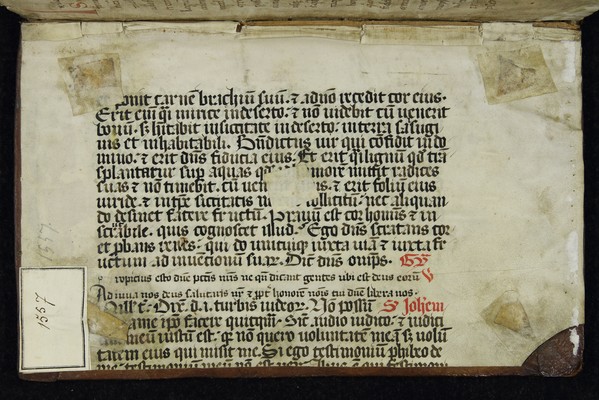 ponit carnē brachiū suū· ⁊ adnō recedit cor eius·
Erit eni qi mirice indeserto· ⁊ nō videbit cū venerit
bonū· s; hītabit insiccitate indeserto· interra salsugi
nis et inhabitabili. Bn̄dictus vir qui cōfidit indo
mino· ⁊ erit dn̄s fiducia eius. Et erit qi lignū qd trā
splantatur sup aquas more mittit radices
suas ⁊ nō timebit. cū ven ⁊ erit foliū eius
viride· ⁊ intēpe siccitatis sollicitū· nec aliquan
do desinet facere fructū. Pravū est cor hoīnis ⁊ in
scrutabile· quis cognoscet illud· Ego dn̄s scrutans cor
et pbans renes· qui do unicuiq; iuxta viā ⁊ iuxta fr
uctum adinventionū suar. Dic̄ dn̄s om̄ps. Gr̄
propicius esto dn̄e pctīs nr̄is ne qn̄ dicant gentes ubi est deus eorū V
Adiuva nos deus salutaris nr̄ ⁊ ppt honorē nōis tui dn̄e libera nos·
ill t. Dix d. i. turbis iudeor. Nō possū S Johem
a me ipo facere quicqm. Sic audio iudico. ⁊ iudici
um meū iustū est. qr nō quero voluntatē meā s; volū
tatem eius qui misit me. Si ego testimoniū phibeo de
me· testimoniū meū nō est
1557
1557